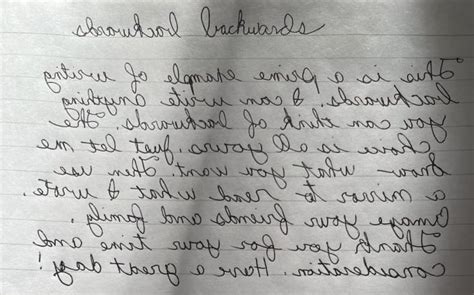 backwards backwards
This is a prime example of writing
backwards. I can write anything
you can think of backwards. The
choice is all yours. Just let me
know what you want. Then use
a mirror to read what I wrote.
Amaze your friends and family.
Thank you for your time and
consideration. Have a great day!